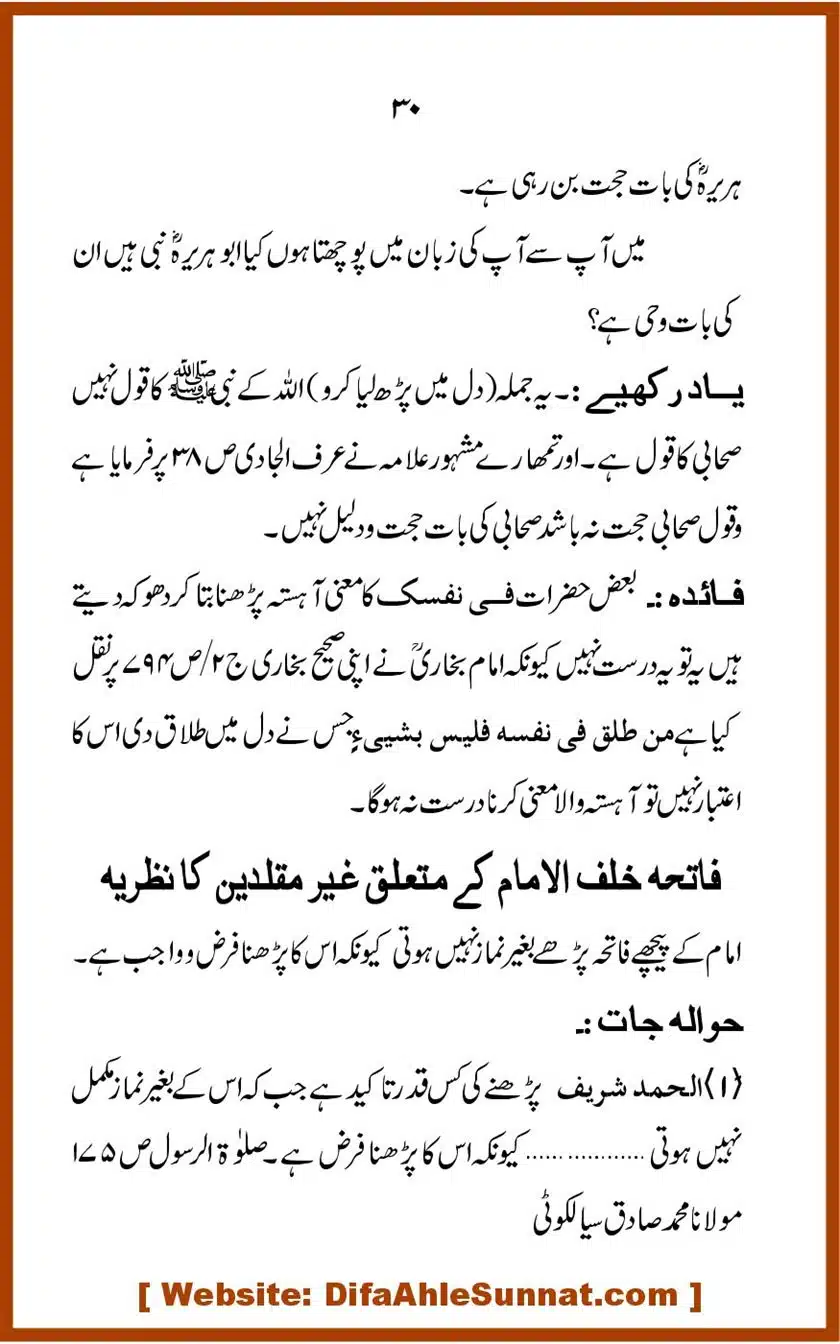 ۳۰
ہریرہؓ کی بات حجت بن رہی ہے۔
میں آپ سے آپ کی زبان میں پوچھتا ہوں کیا ابو ہریرہؓ نبی ہیں ان
کی بات وحی ہے؟
یاد رکھیے :۔ یہ جملہ (دل میں پڑھ لیا کرو) اللہ کے نبی ﷺ کا قول نہیں
صحابی کا قول ہے۔ اور تمھارے مشہور علامہ نے عرف الجادی ص ۳۸ پر فرمایا ہے
وقول صحابی حجت نہ باشد صحابی کی بات حجت و دلیل نہیں۔
فائدہ :۔ بعض حضرات فی نفسک کا معنی آہستہ پڑھنا بتا کر دھوکہ دیتے
ہیں یہ تو یہ درست نہیں کیونکہ امام بخاریؒ نے اپنی صحیح بخاری ج۲/ص۷۹۴ پر نقل
کیا ہے من طلق فی نفسه فلیس بشییءٍ جس نے دل میں طلاق دی اس کا
اعتبار نہیں تو آہستہ والا معنی کرنا درست نہ ہوگا۔
فاتحہ خلف الامام کے متعلق غیر مقلدین کا نظریہ
امام کے پیچھے فاتحہ پڑھے بغیر نماز نہیں ہوتی کیونکہ اس کا پڑھنا فرض و واجب ہے۔
حوالہ جات :۔
(۱) الحمد شریف پڑھنے کی کس قدر تاکید ہے جب کہ اس کے بغیر نماز مکمل
نہیں ہوتی .................. کیونکہ اس کا پڑھنا فرض ہے۔ صلوٰۃ الرسول ص ۱۷۵
مولانا محمد صادق سیالکوٹی
[ Website: DifaAhleSunnat.com ]